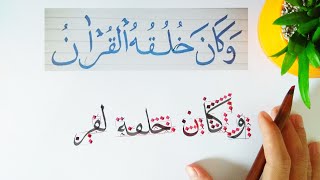 وَكَانَ خُلُقُهُ الْقُرْآنُ
وكان خلقه لقر